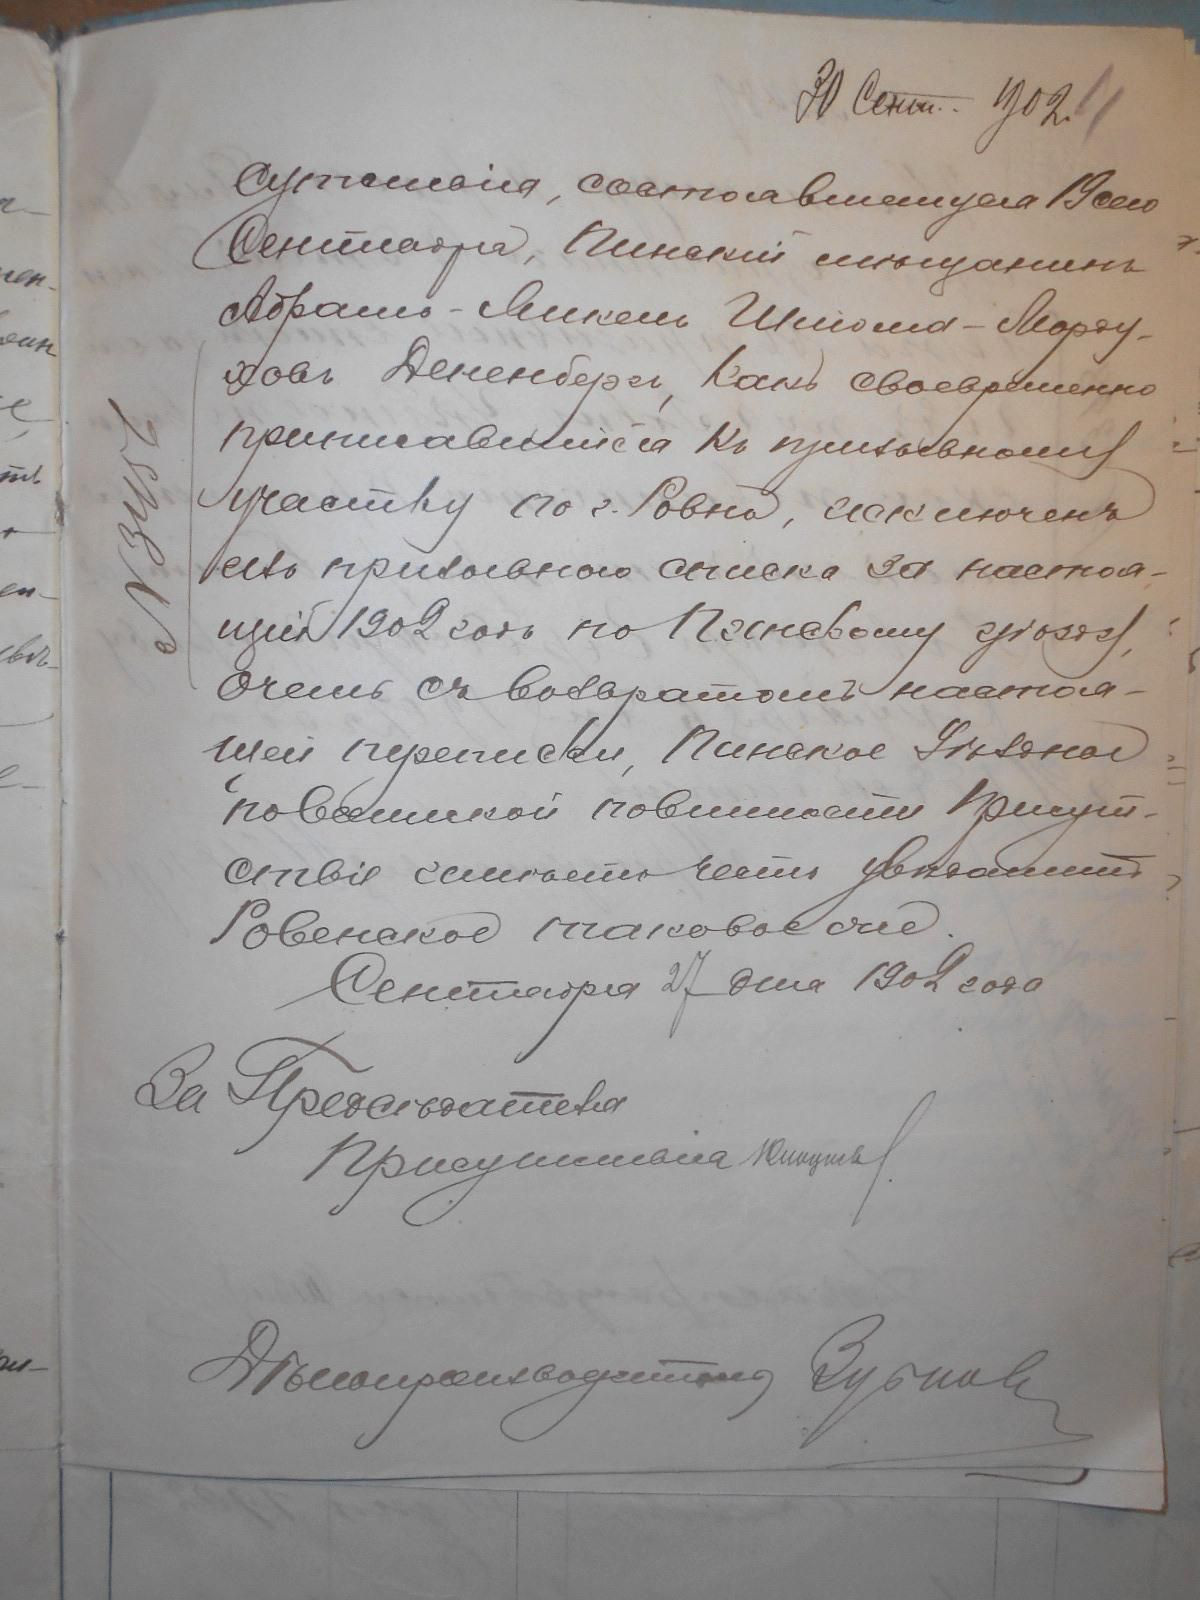 30 Сент. 1902.
сутствія, состоявшемуся 19 сего
Сентября, Пинскій мѣщанинъ
Абрамъ-Микель Шліома-Морду-
ховъ Дененбергъ, какъ своевременно
приписавшійся къ призывному
участку по г. Ровно, исключенъ
изъ призывного списка за настоя-
щій 1902 годъ по Пинскому уѣзду,
о чемъ съ возвратомъ настоя-
щей переписки, Пинское Уѣздное
по воинской повинности Присут-
ствіе имѣетъ честь увѣдомить
Ровенское таковое же.
Сентября 27 дня 1902 года
За Предсѣдателя
Присутствія
Дѣлопроизводитель
№